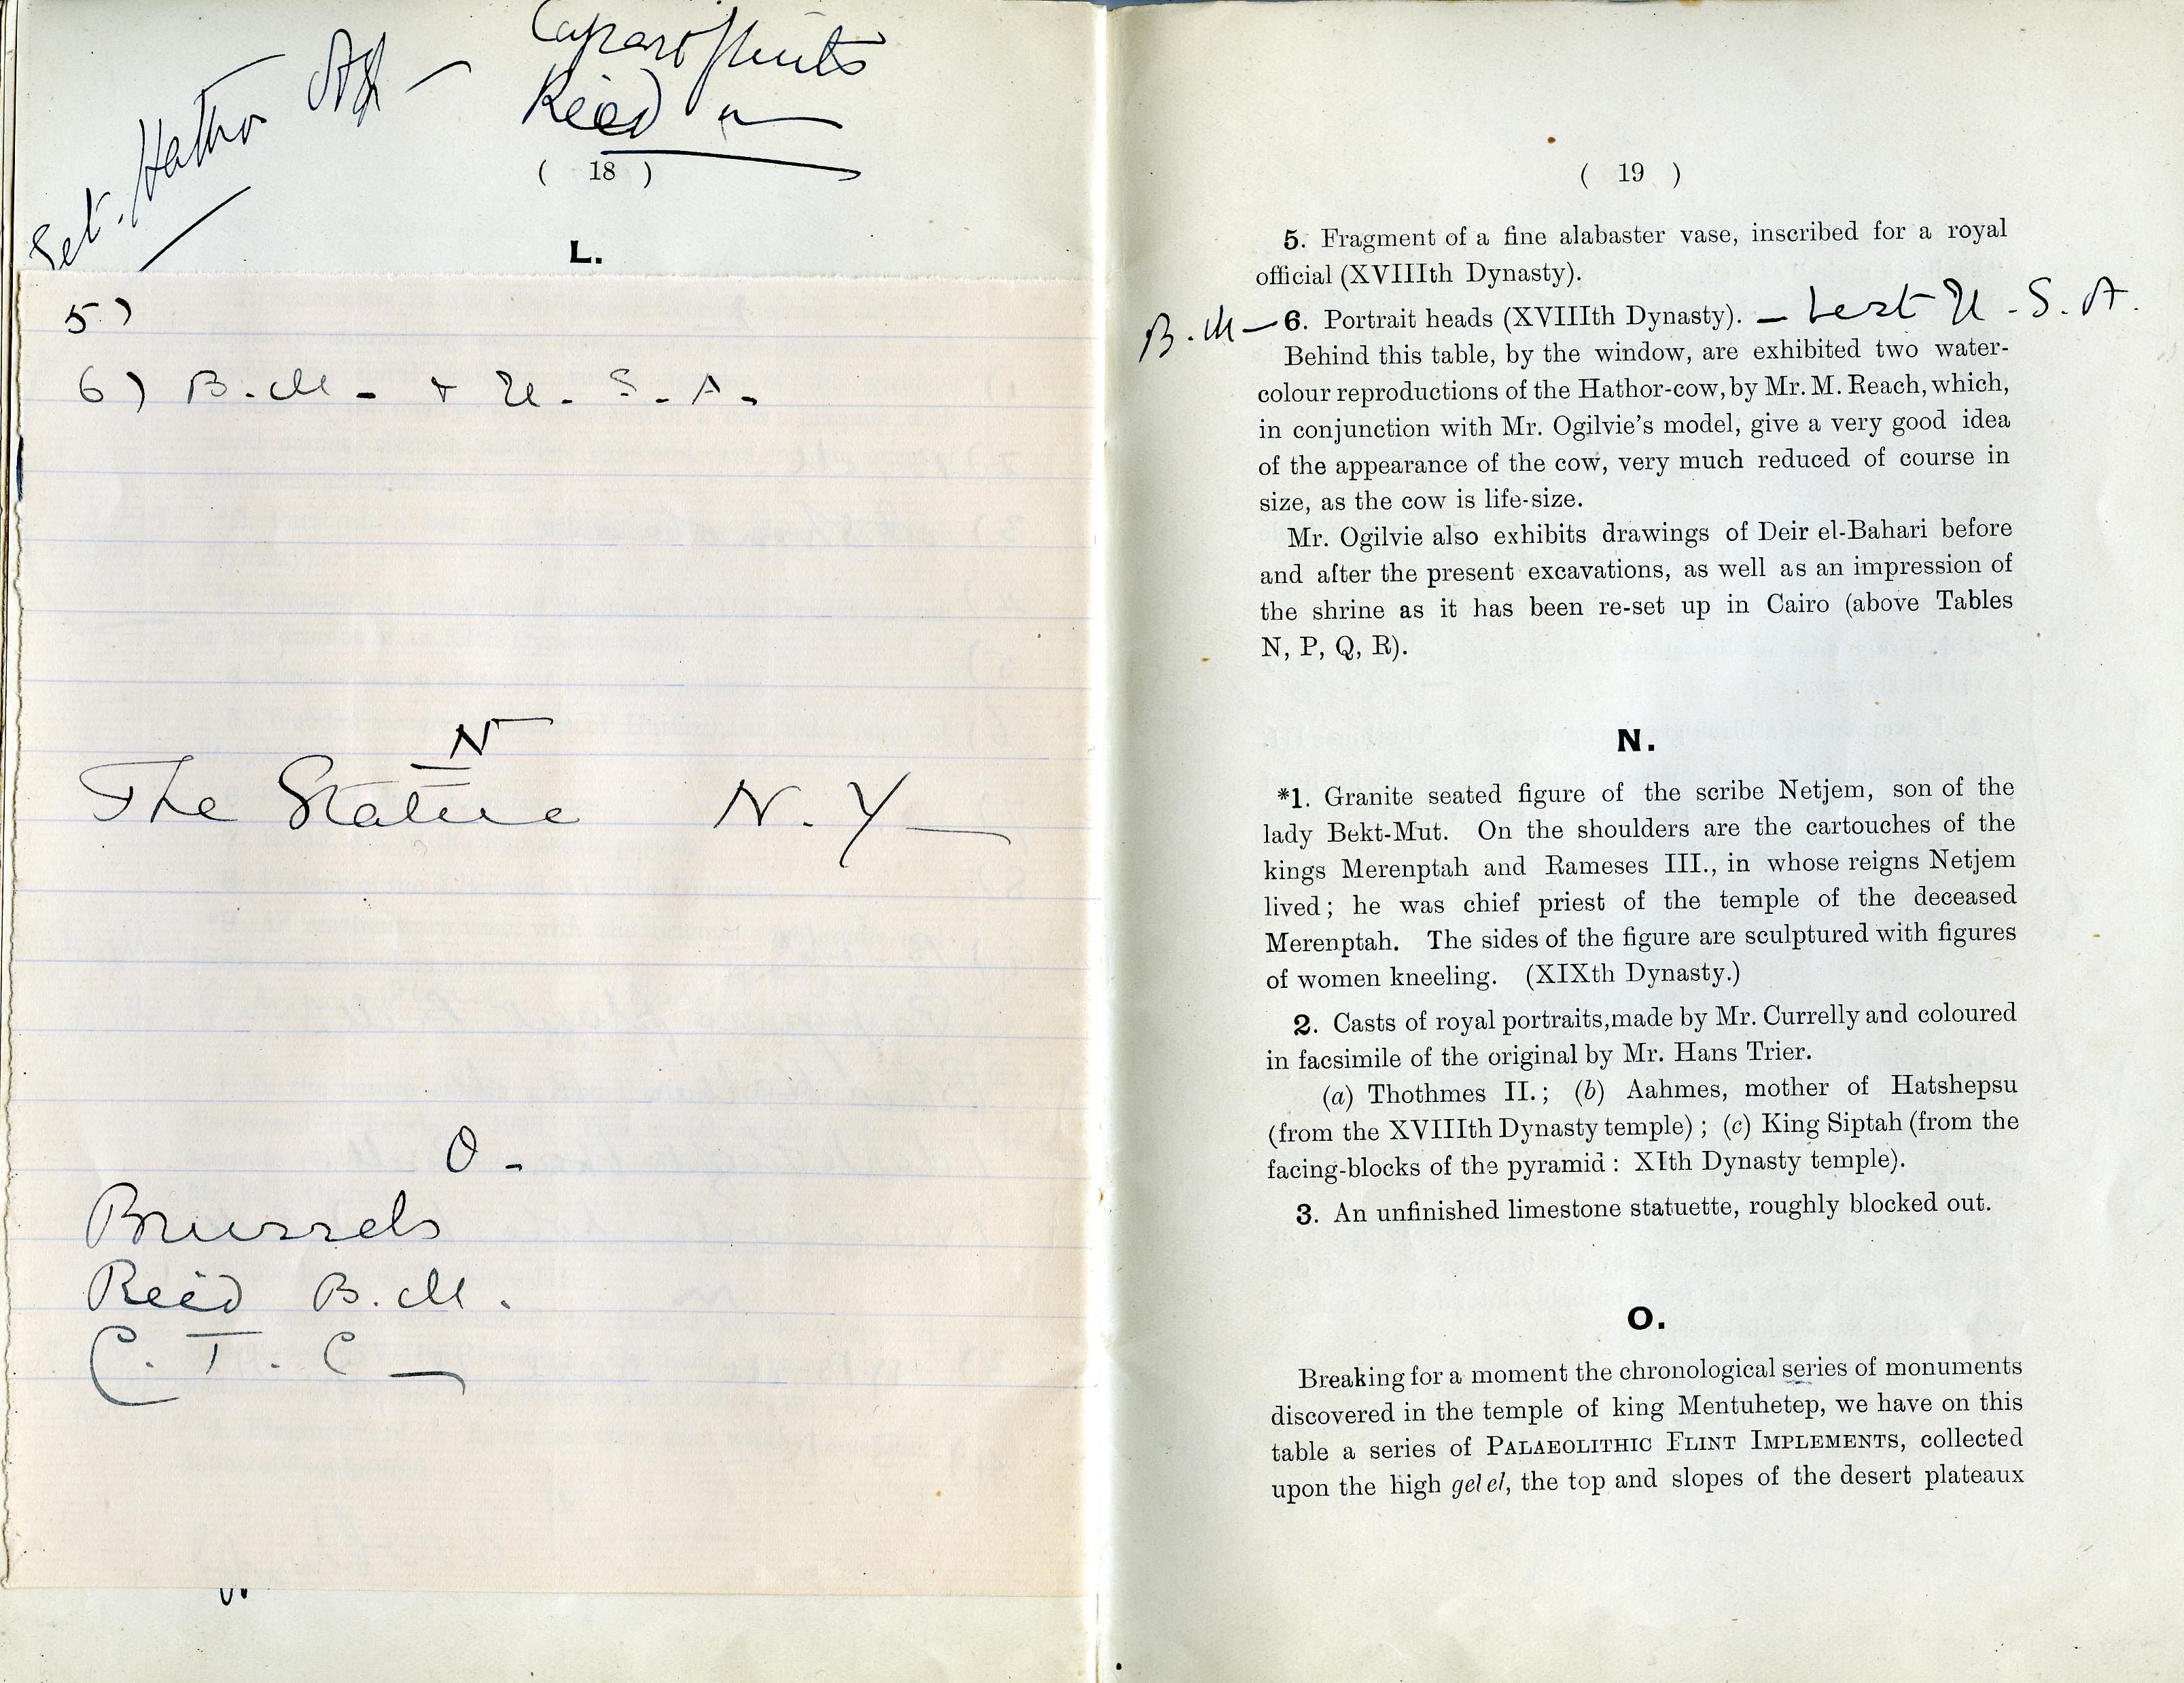 Set. Hathor
Reed
( 18 )
L.
5)
6) B.M. + U.S.A.
N
The Statue N.Y.
O.
Brussels
Reed B.M.
C.T.C
( 19 )
5. Fragment of a fine alabaster vase, inscribed for a royal
official (XVIIIth Dynasty).
B.M — 6. Portrait heads (XVIIIth Dynasty). — best U.S.A.
Behind this table, by the window, are exhibited two water-
colour reproductions of the Hathor-cow, by Mr. M. Reach, which,
in conjunction with Mr. Ogilvie's model, give a very good idea
of the appearance of the cow, very much reduced of course in
size, as the cow is life-size.
Mr. Ogilvie also exhibits drawings of Deir el-Bahari before
and after the present excavations, as well as an impression of
the shrine as it has been re-set up in Cairo (above Tables
N, P, Q, R).
N.
*1. Granite seated figure of the scribe Netjem, son of the
lady Bekt-Mut. On the shoulders are the cartouches of the
kings Merenptah and Rameses III., in whose reigns Netjem
lived; he was chief priest of the temple of the deceased
Merenptah. The sides of the figure are sculptured with figures
of women kneeling. (XIXth Dynasty.)
2. Casts of royal portraits, made by Mr. Currelly and coloured
in facsimile of the original by Mr. Hans Trier.
(a) Thothmes II.; (b) Aahmes, mother of Hatshepsu
(from the XVIIIth Dynasty temple); (c) King Siptah (from the
facing-blocks of the pyramid: XIth Dynasty temple).
3. An unfinished limestone statuette, roughly blocked out.
O.
Breaking for a moment the chronological series of monuments
discovered in the temple of king Mentuhetep, we have on this
table a series of PALAEOLITHIC FLINT IMPLEMENTS, collected
upon the high gel el, the top and slopes of the desert plateaux